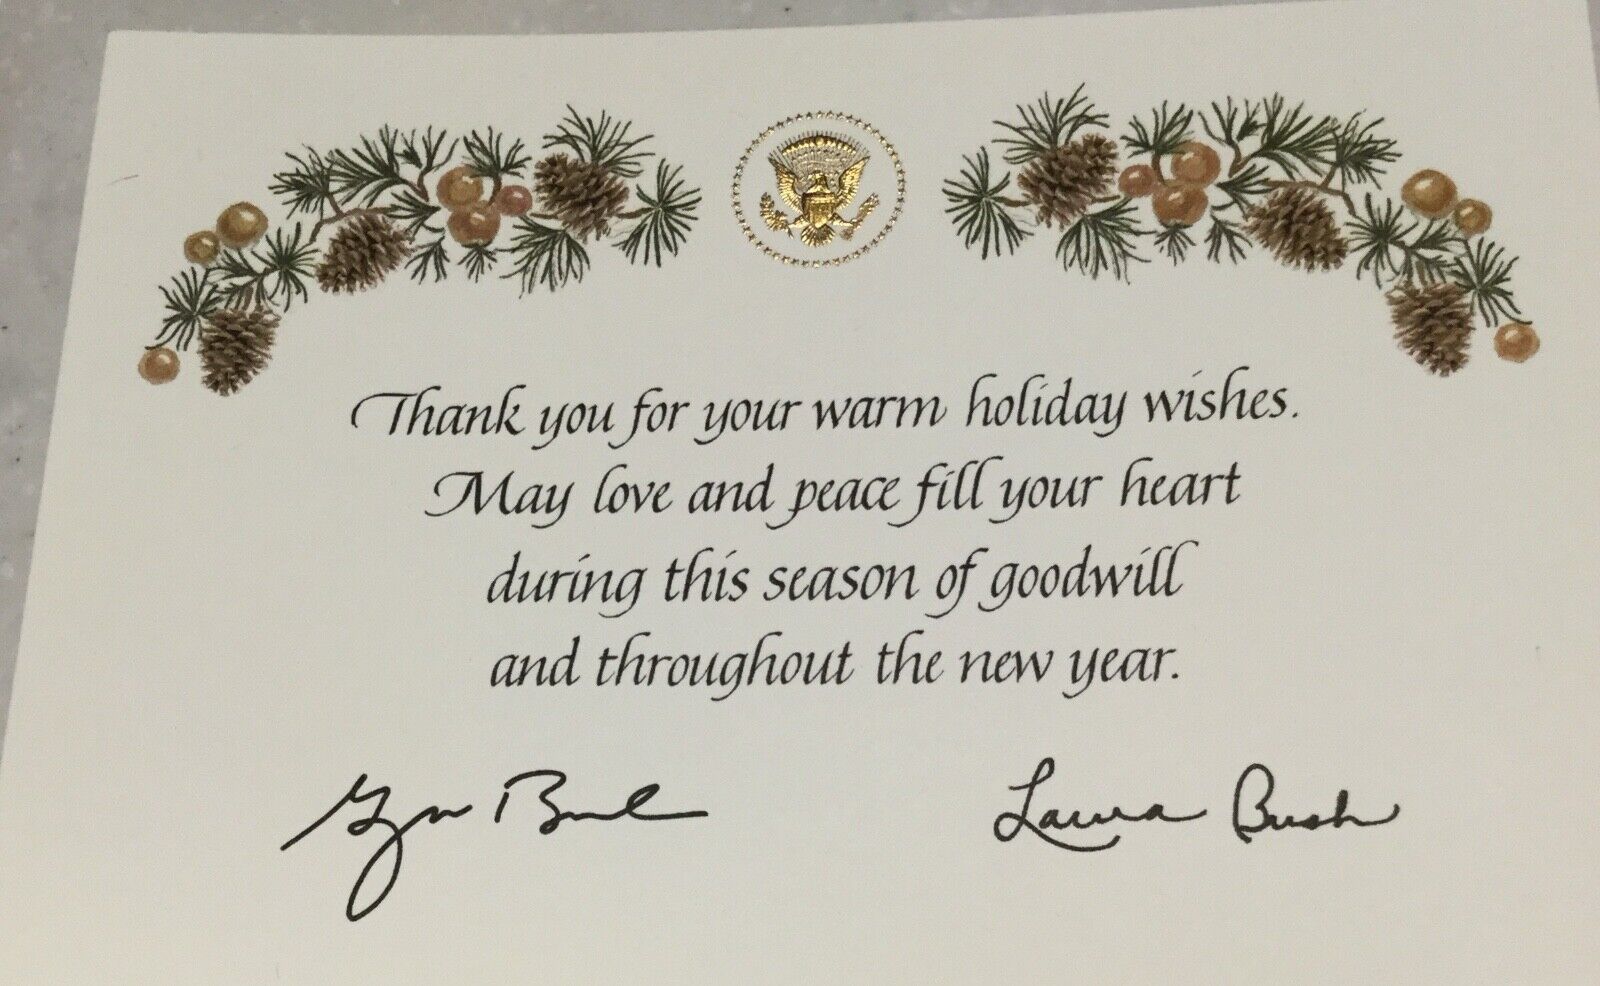 Thank you for your warm holiday wishes.
May love and peace fill your heart
during this season of goodwill
and throughout the new year.
George Bush Laura Bush